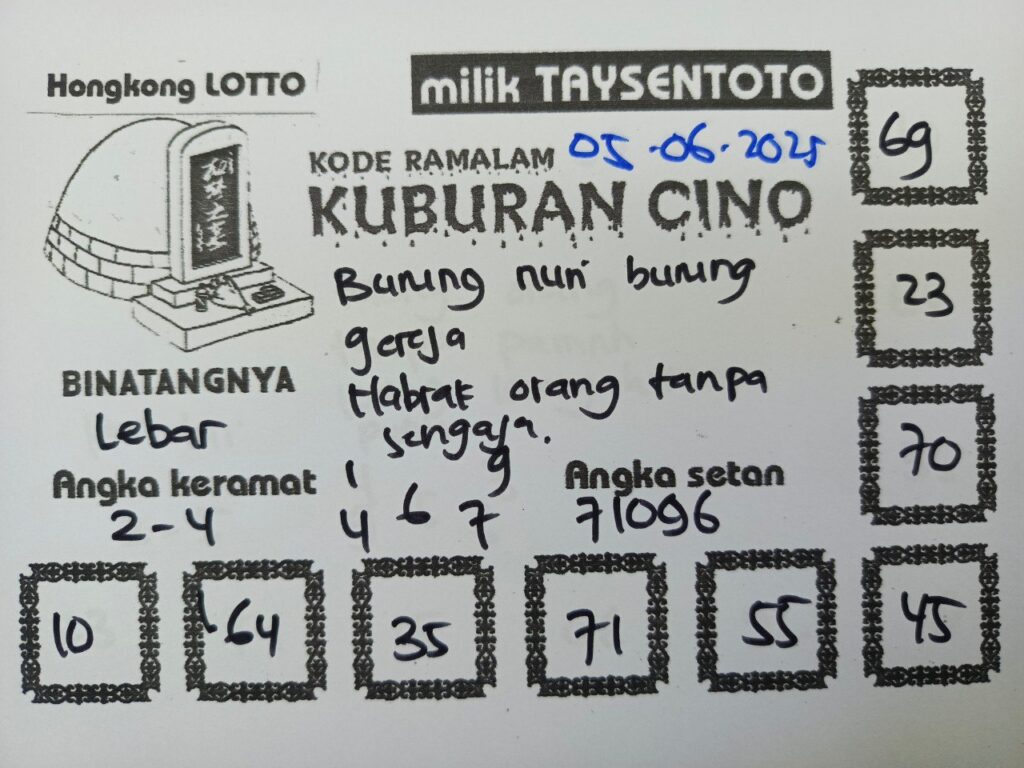 Hongkong LOTTO
milik TAYSENTOTO
KODE RAMALAM 05-06-2025
KUBURAN CINO
Burung nuri burung
gereja
Habrat orang tanpa
sengaja.
BINATANGNYA
Lebar
Angka keramat
2-4
1 9
4 6 7
Angka setan
71096
69
23
70
10 64 35 71 55 45